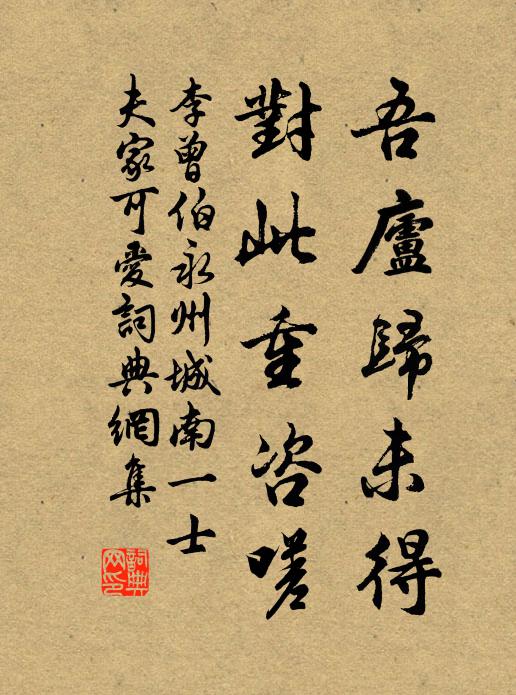 吾廬歸未得
對此重咨嗟
李曾伯永州城南一士
夫家可愛詞典網集
詞典網印